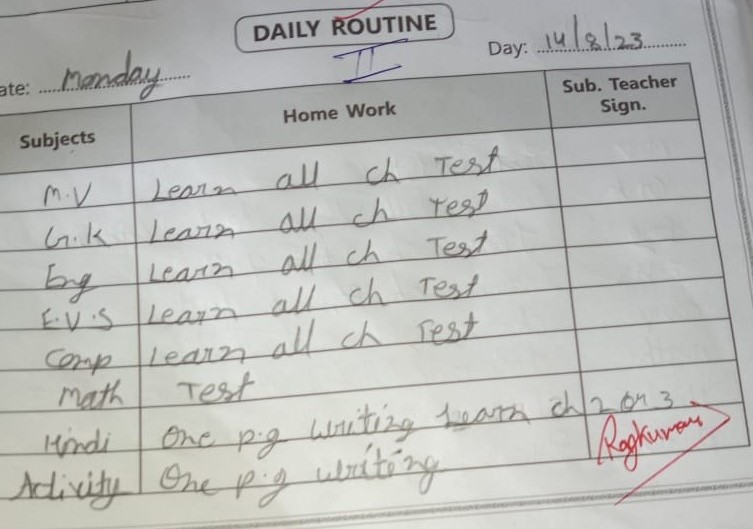 DAILY ROUTINE
II
ate: Monday Day: 14/8/23
Subjects Home Work Sub. Teacher Sign.
M.V Learn all ch Test
G.K Learn all ch Test
Eng Learn all ch Test
E.V.S Learn all ch Test
Comp Learn all ch Test
Math Test
Hindi One p.g writing Learn ch 2 or 3
Activity One p.g writing